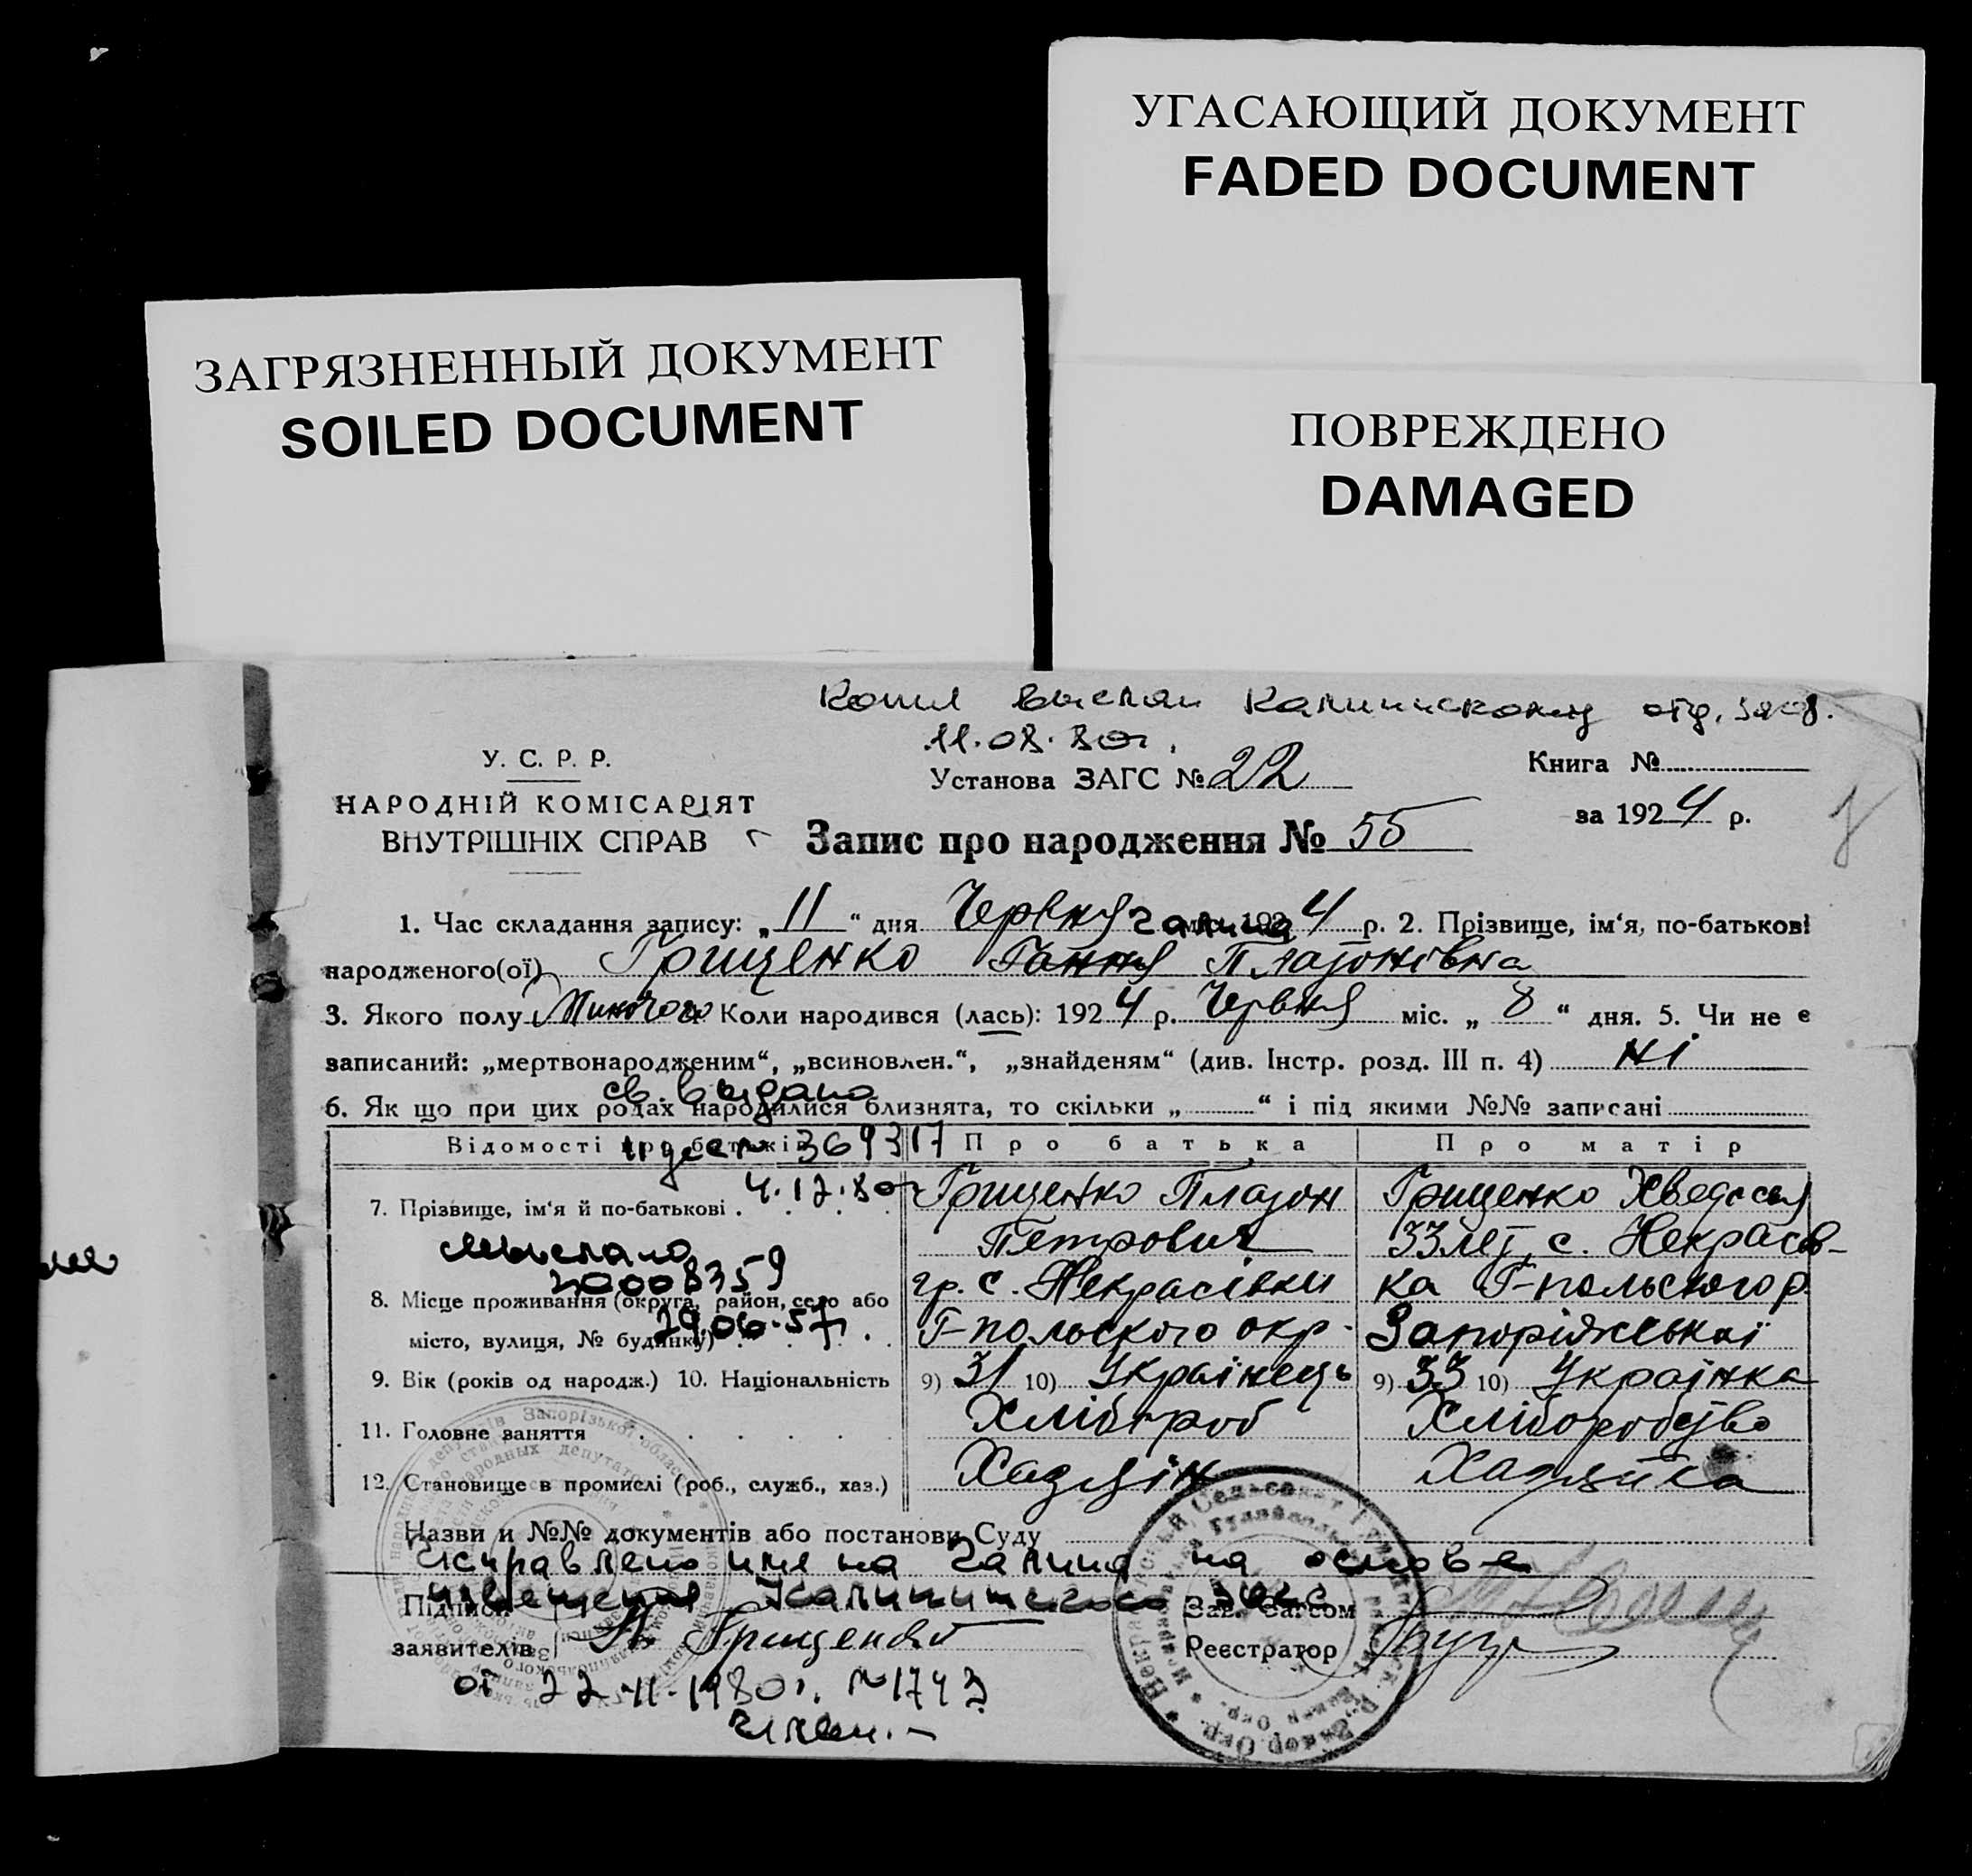 УГАСАЮЩИЙ ДОКУМЕНТ
FADED DOCUMENT
ЗАГРЯЗНЕННЫЙ ДОКУМЕНТ
SOILED DOCUMENT
ПОВРЕЖДЕНО
DAMAGED
Копия выслан Калининскому отд. загс.
11.08.80г.
У. С. Р. Р.
НАРОДНІЙ КОМІСАРІЯТ
ВНУТРІШНІХ СПРАВ
Установа ЗАГС № 22
Книга №
за 1924 р.
Запис про народження № 55
1. Час складання запису: „11“ дня Червня 1924 р. 2. Прізвище, ім‘я, по-батькові
Галина
народженого(ої) Грищенко Гання Плазонівна
3. Якого полу Жиночого 4. Коли народився (лась): 1924 р. Червня міс. „8“ дня. 5. Чи не є
записаний: „мертвонародженим“, „всиновлен.“, „знайденям“ (див. Інстр. розд. III п. 4) ні
св. выдано
6. Як що при цих родах народилися близнята, то скільки „ “ і під якими №№ записані
Відомості про батьків
369317
4.12.80г
Про батька
Про матір
7. Прізвище, ім‘я й по-батькові
Грищенко Плазон
Петрович
Грищенко Хведося
33 лет, с. Некрасов-
8. Місце проживання (округа, район, село або
місто, вулиця, № будинку)
29.06.57г.
гр. с. Некрасівки
Г-польского окр.
ка Г-польского р.
Запоріжської
9. Вік (років од народж.) 10. Національність
9) 31 10) Українець
9) 33 10) Українка
11. Головне заняття
Хлібороб
Хліборобство
12. Становище в промислі (роб., служб., хаз.)
Хазяїн
Хазяйка
Назви и №№ документів або постанови Суду
исправлено имя на Галина на основе
извещения Калининского загс
Підписи
заявителів
П. Грищенко
Зав. Загсом
Реєстратор
от 22.11.1980г. №1743